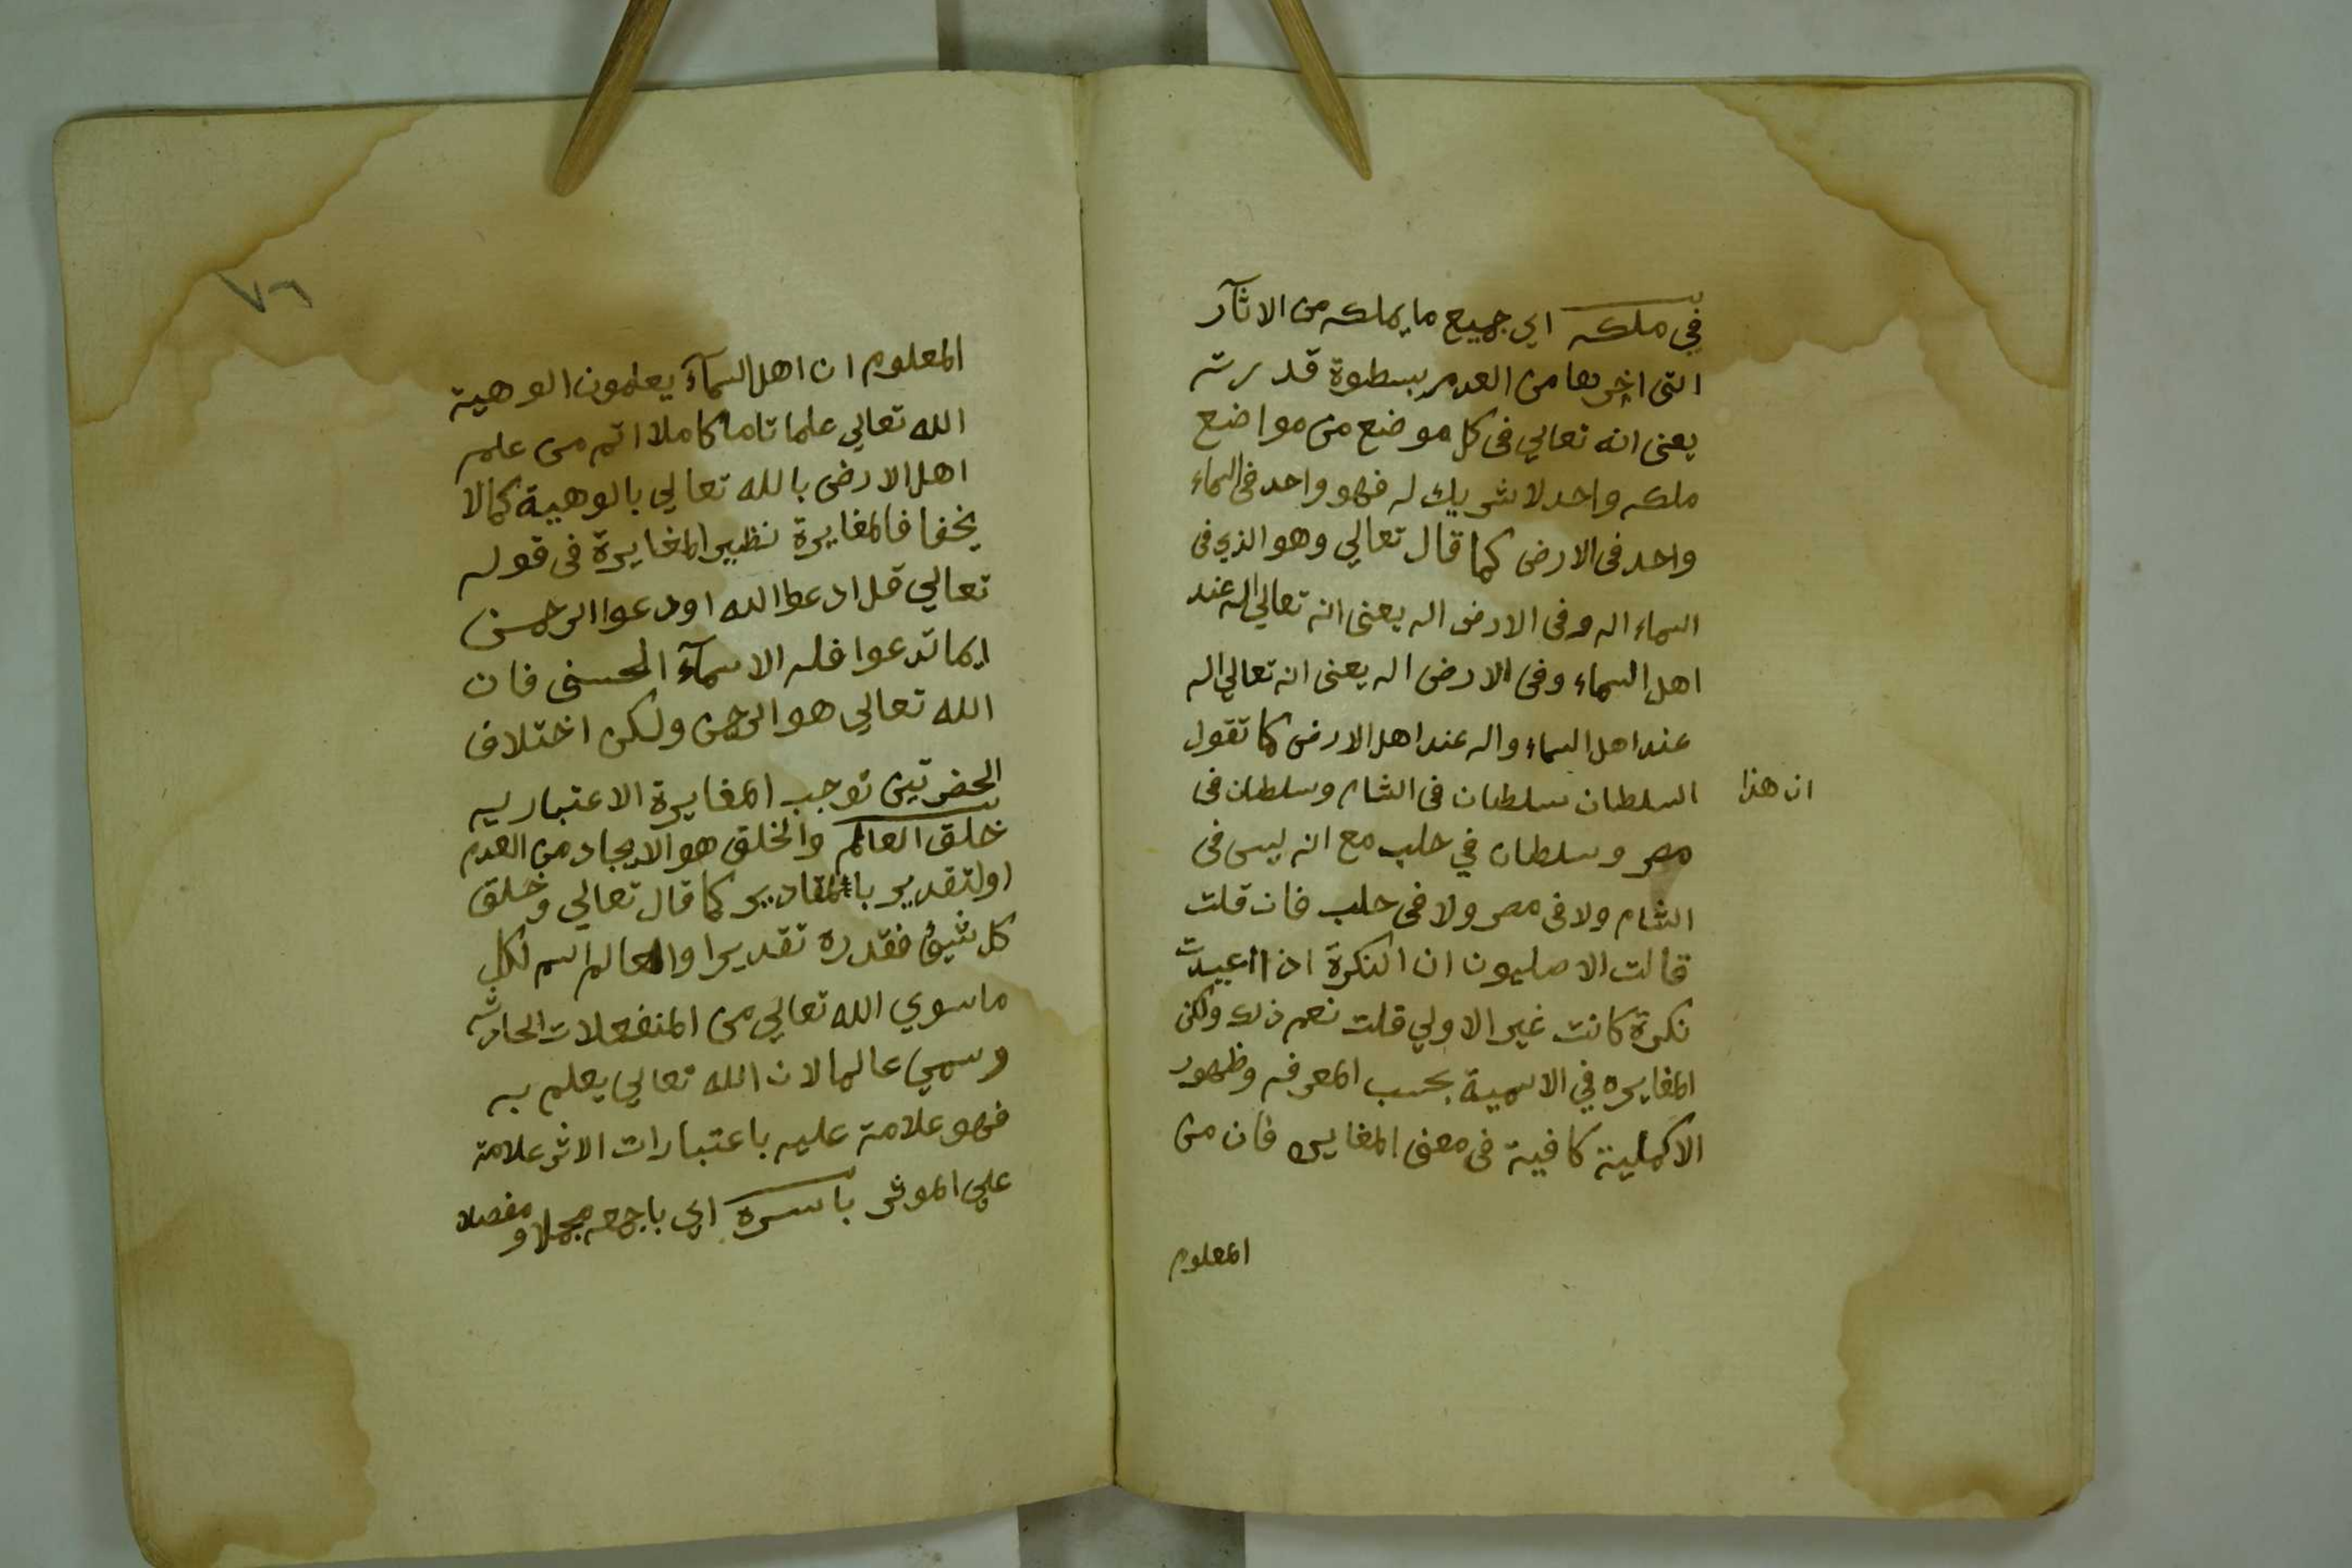 في ملكه اي جميع ما يملكه من الاثآر
التى اخرجها من العدم بسطوة قدرته
يعنى انه تعالي فى كل موضع من مواضع
ملكه واحد لا شريك له فهو واحد فى السماء
واحد فى الارض كما قال تعالي وهو الذي فى
السماء اله وفى الارض اله يعنى انه تعالي اله عند
اهل السماء وفى الارض اله يعنى انه تعالي اله
عند اهل السماء واله عند اهل الارض كما تقول
ان هذا
السلطان سلطان فى الشام وسلطان فى
مصر وسلطان في حلب مع انه ليس فى
الشام ولا فى مصر ولا فى حلب فان قلت
قالت الاصليون ان النكرة اذا اعيدت
نكرة كانت غير الاولي قلت نعم ذلك ولكن
المغايره في الاسمية بحسب المعرفه وظهور
الاكملية كافية فى معنى المغايره فان من
المعلوم
٧٦
المعلوم ان اهل السمآء يعلمون الوهية
الله تعالي علما تاما كاملا اتم من علم
اهل الارض بالله تعالي بالوهية كما لا
يخفا فالمغايرة نظير المغايرة فى قوله
تعالي قل ادعوا الله اودعوا الرحمن
ايما تدعوا فله الاسمآء الحسنى فان
الله تعالي هو الرحمن ولكن اختلاف
الحضرتين توجب المغايرة الاعتباريه
خلق العالم والخلق هو الايجاد من العدم
اولتقدير بالمقادير كما قال تعالي وخلق
كل شيئ فقدره تقديرا والعالم اسم لكل
ما سوي الله تعالي من المنفعلات الحادثه
وسمي عالما لان الله تعالي يعلم به
فهو علامة عليه باعتبارات الاثر علامة
علي الموثر باسره اي باجمعه مجملا ومفصلا